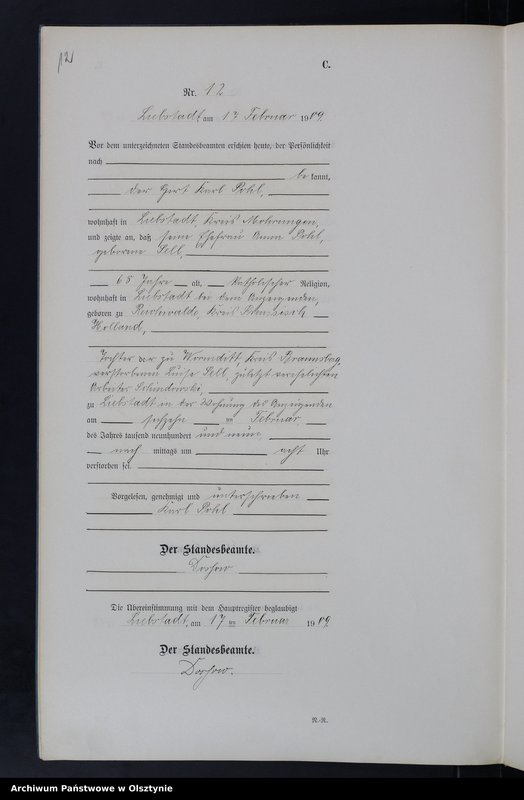 12
C.
Nr. 12
Liebstadt am 17 Februar 1909
Vor dem unterzeichneten Standesbeamten erschien heute, der Persönlichkeit
nach
bekannt,
der Hirt Karl Pohl,
wohnhaft in Liebstadt Kreis Mohrungen,
und zeigte an, daß seine Ehefrau Anna Pohl,
geborene Sell,
68 Jahre alt, katholischer Religion,
wohnhaft in Liebstadt bei dem Anzeigenden,
geboren zu Kreis Preussisch
Holland,
Tochter der zu Wormditt, Kreis Braunsberg,
verstorbenen Luise Sell, zuletzt verehelichten
Arbeiter
zu Liebstadt in der Wohnung des Anzeigenden
am sechzehn ten Februar
des Jahres tausend neunhundert und neun,
nach mittags um acht Uhr
verstorben sei.
Vorgelesen, genehmigt und unterschrieben
Karl Pohl
Der Standesbeamte.
Die Übereinstimmung mit dem Hauptregister beglaubigt
Liebstadt, am 17 ten Februar 1909.
Der Standesbeamte.
N.-R.
Archiwum Państwowe w Olsztynie